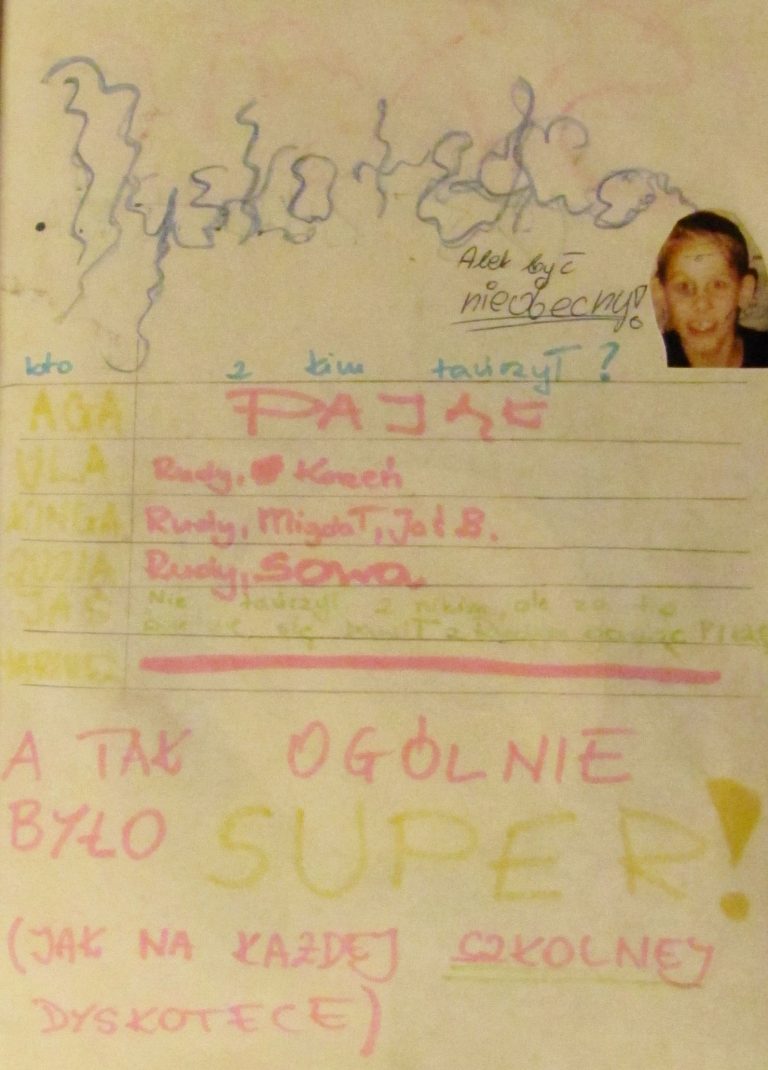 Dyskoteka
Alek być
nieobecny!
kto z kim tańczył?
AGA PAJĄK
ULA Rudy,
KINGA Rudy, Migdał, Jaś B.
ZUZIA Rudy, Sowa
JAŚ Nie tańczył z nikim, ale za to
MARIUSZ
A TAK OGÓLNIE
BYŁO SUPER!
(JAK NA KAŻDEJ SZKOLNEJ
DYSKOTECE)